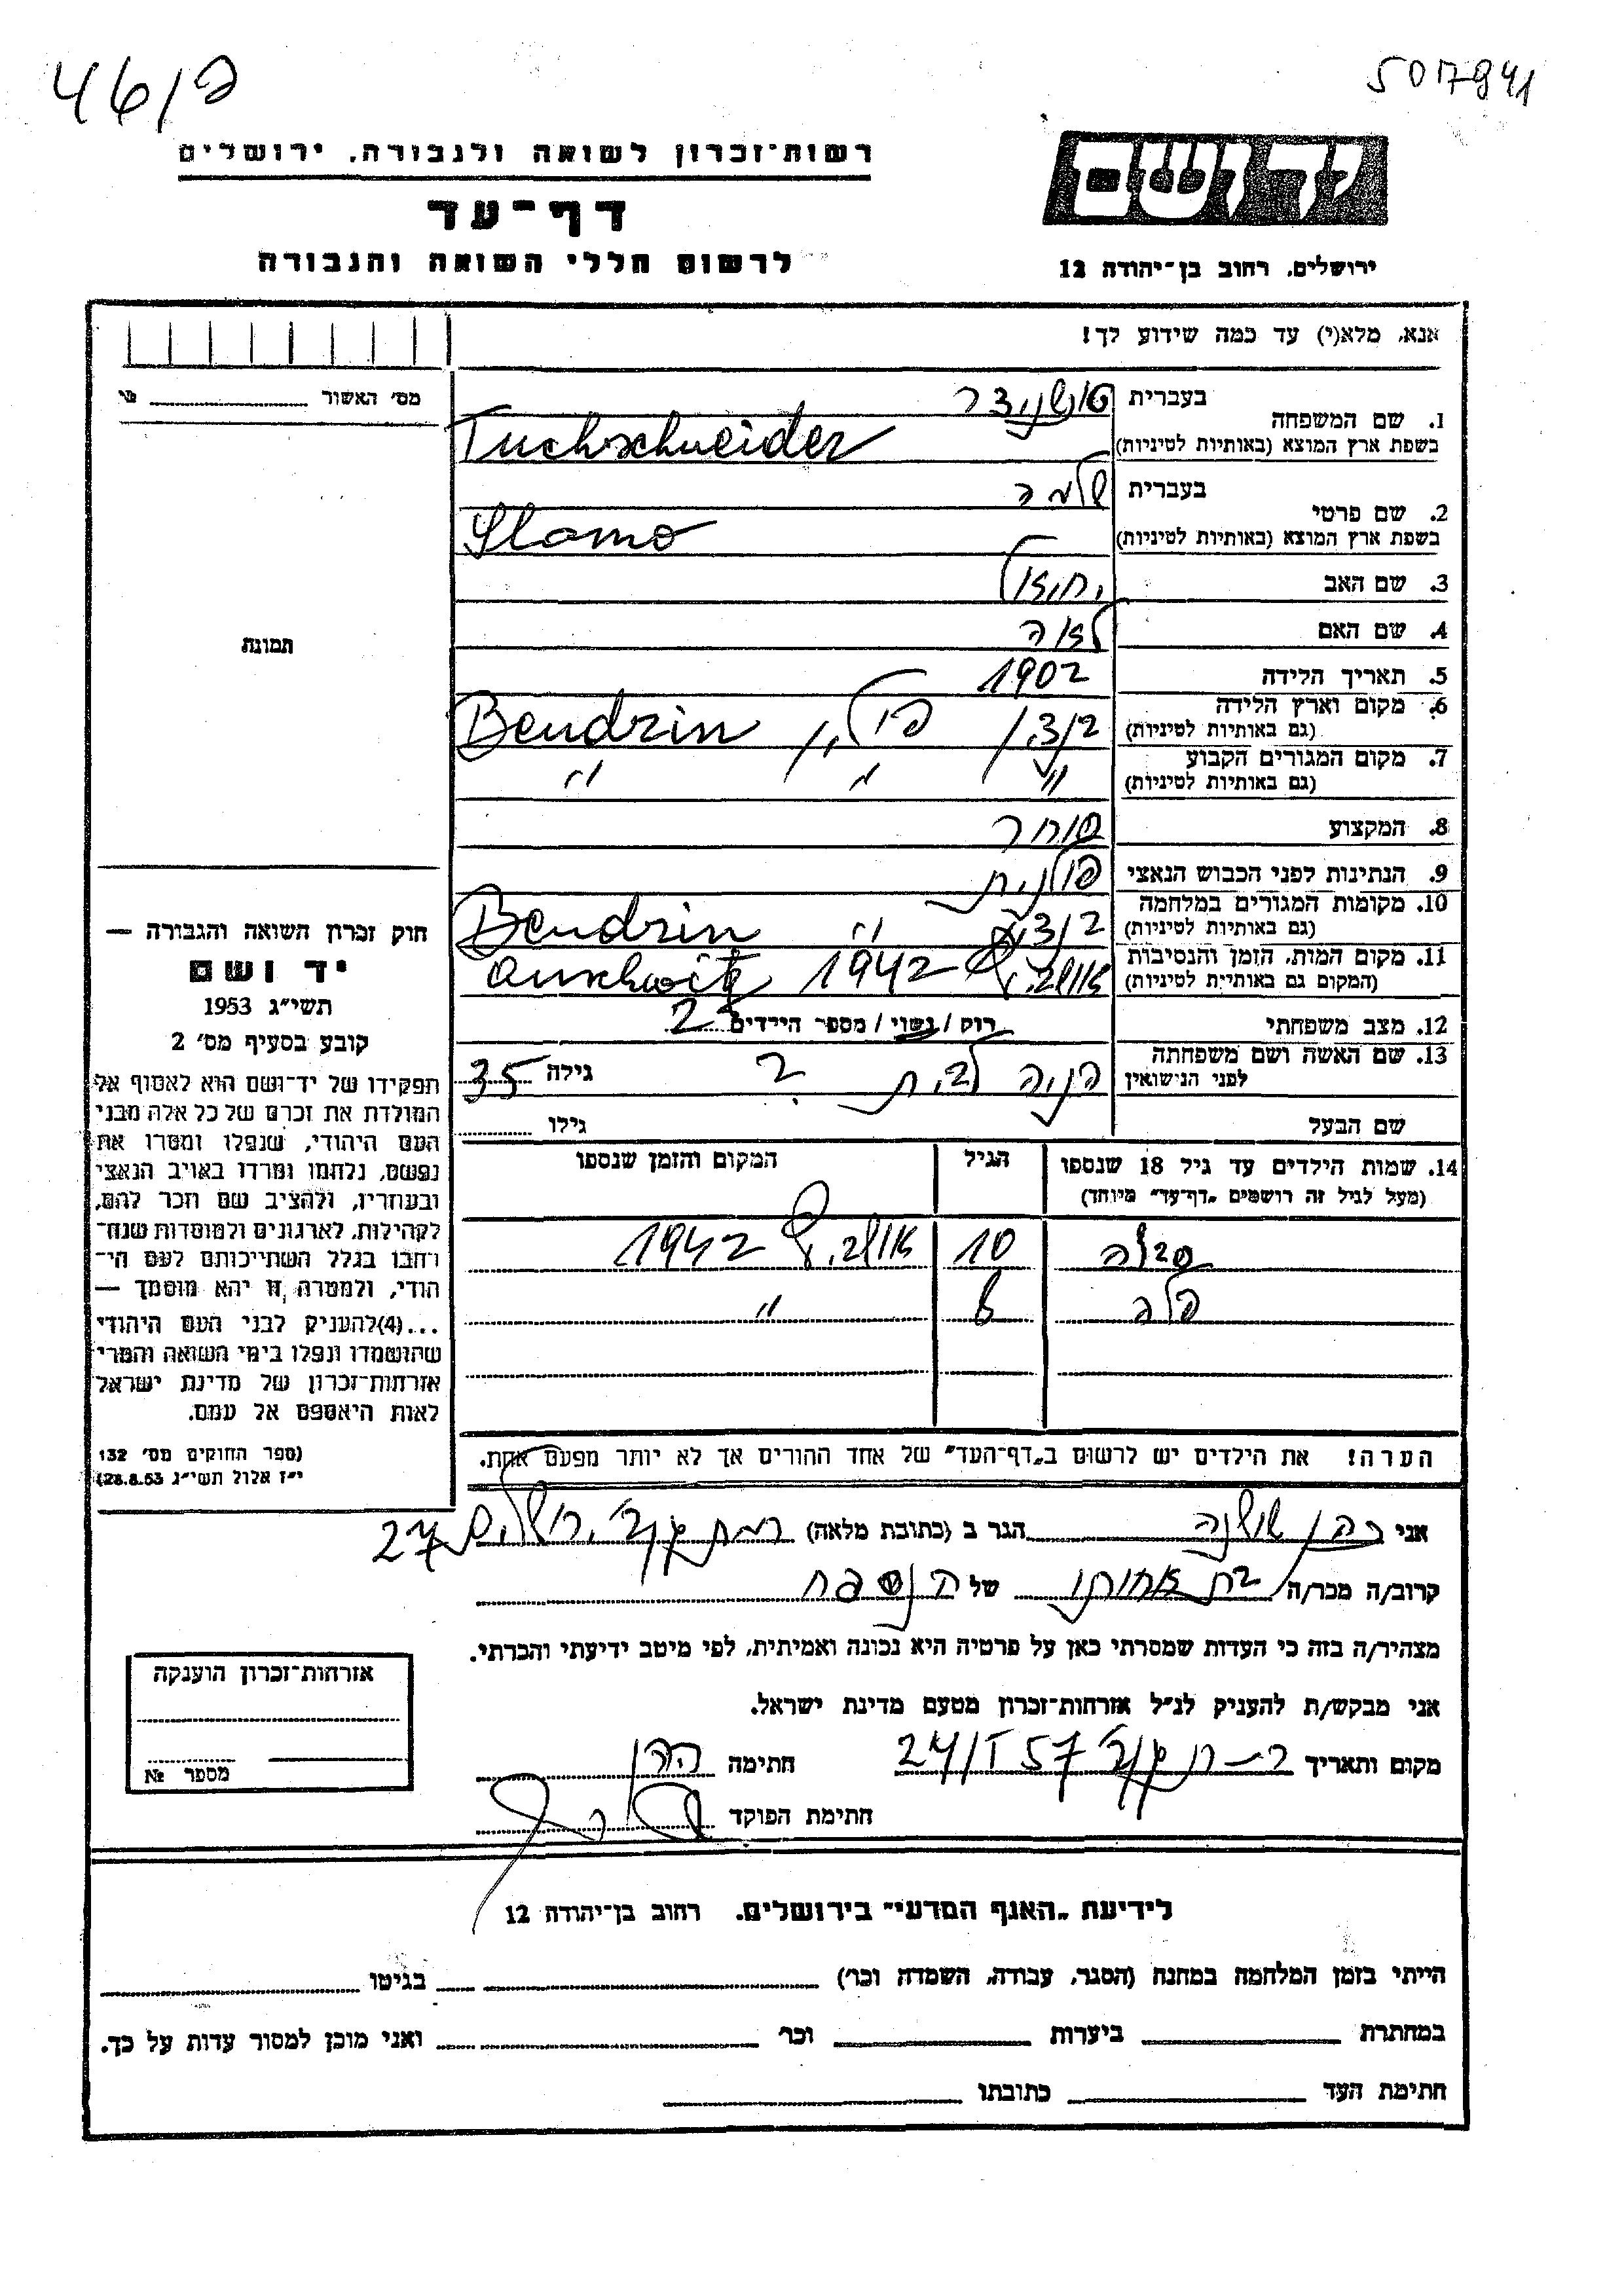 46/פ
5017941
רשות־זכרון לשואה ולגבורה, ירושלים
יד ושם
דף־עד
לרשום חללי השואה והגבורה
ירושלים, רחוב בן־יהודה 12
אנא, מלא(י) עד כמה שידוע לך!
מס׳ האשור
1. שם המשפחה
בעברית טושניידר
בשפת ארץ המוצא (באותיות לטיניות) Tuchschneider
2. שם פרטי
בעברית שלמה
בשפת ארץ המוצא (באותיות לטיניות) Slamo
3. שם האב יחיאל
4. שם האם לאה
5. תאריך הלידה 1902
6. מקום וארץ הלידה
(גם באותיות לטיניות) Bendzin
7. מקום המגורים הקבוע
(גם באותיות לטיניות) " " "
8. המקצוע סוחר
9. הנתינות לפני הכבוש הנאצי פולנית
10. מקומות המגורים במלחמה
(גם באותיות לטיניות) Bendzin "
11. מקום המות, הזמן והנסיבות
(המקום גם באותיות לטיניות) 1942 Auschwitz
12. מצב משפחתי רוק / נשוי / מספר הילדים 2
13. שם האשה ושם משפחתה
לפני הנישואין לבית ? גילה 35
שם הבעל גילו
14. שמות הילדים עד גיל 18 שנספו
(מעל לגיל זה רושמים „דף־עד״ מיוחד)
הגיל
המקום והזמן שנספו
10 1942
8 "
הערה! את הילדים יש לרשום ב„דף־העד״ של אחד ההורים אך לא יותר מפעם אחת.
תמונה
חוק זכרון השואה והגבורה —
יד ושם
תשי״ג 1953
קובע בסעיף מס׳ 2
תפקידו של יד־ושם הוא לאסוף אל
המולדת את זכרם של כל אלה מבני
העם היהודי, שנפלו ומסרו את
נפשם, נלחמו ומרדו באויב הנאצי
ובעוזריו, ולהציב שם וזכר להם,
לקהילות, לארגונים ולמוסדות שנח־
רחבו בגלל השתייכותם לעם הי־
הודי, ולמטרה זו יהא מוסמך —
...(4) להעניק לבני העם היהודי
שהושמדו ונפלו בימי השואה והמרי
אזרחות־זכרון של מדינת ישראל
לאות היאספם אל עמם.
(ספר החוקים מס׳ 132
י״ז אלול תשי״ג 28.8.53)
אני כהן שושנה הגר ב (כתובת מלאה) 27
קרוב/ה מכר/ה בת אחותו של הנספה
מצהיר/ה בזה כי העדות שמסרתי כאן על פרטיה היא נכונה ואמיתית, לפי מיטב ידיעתי והכרתי.
אני מבקש/ת להעניק לנ״ל אזרחות־זכרון מטעם מדינת ישראל.
מקום ותאריך 24/I 57 חתימה
חתימת הפוקד
אזרחות־זכרון הוענקה
מספר №
לידיעת „האגף המדעי״ בירושלים. רחוב בן־יהודה 12
הייתי בזמן המלחמה במחנה (הסגר, עבודה, השמדה וכו׳) בגיטו
במחתרת ביערות וכו׳ ואני מוכן למסור עדות על כך.
חתימת העד כתובתו